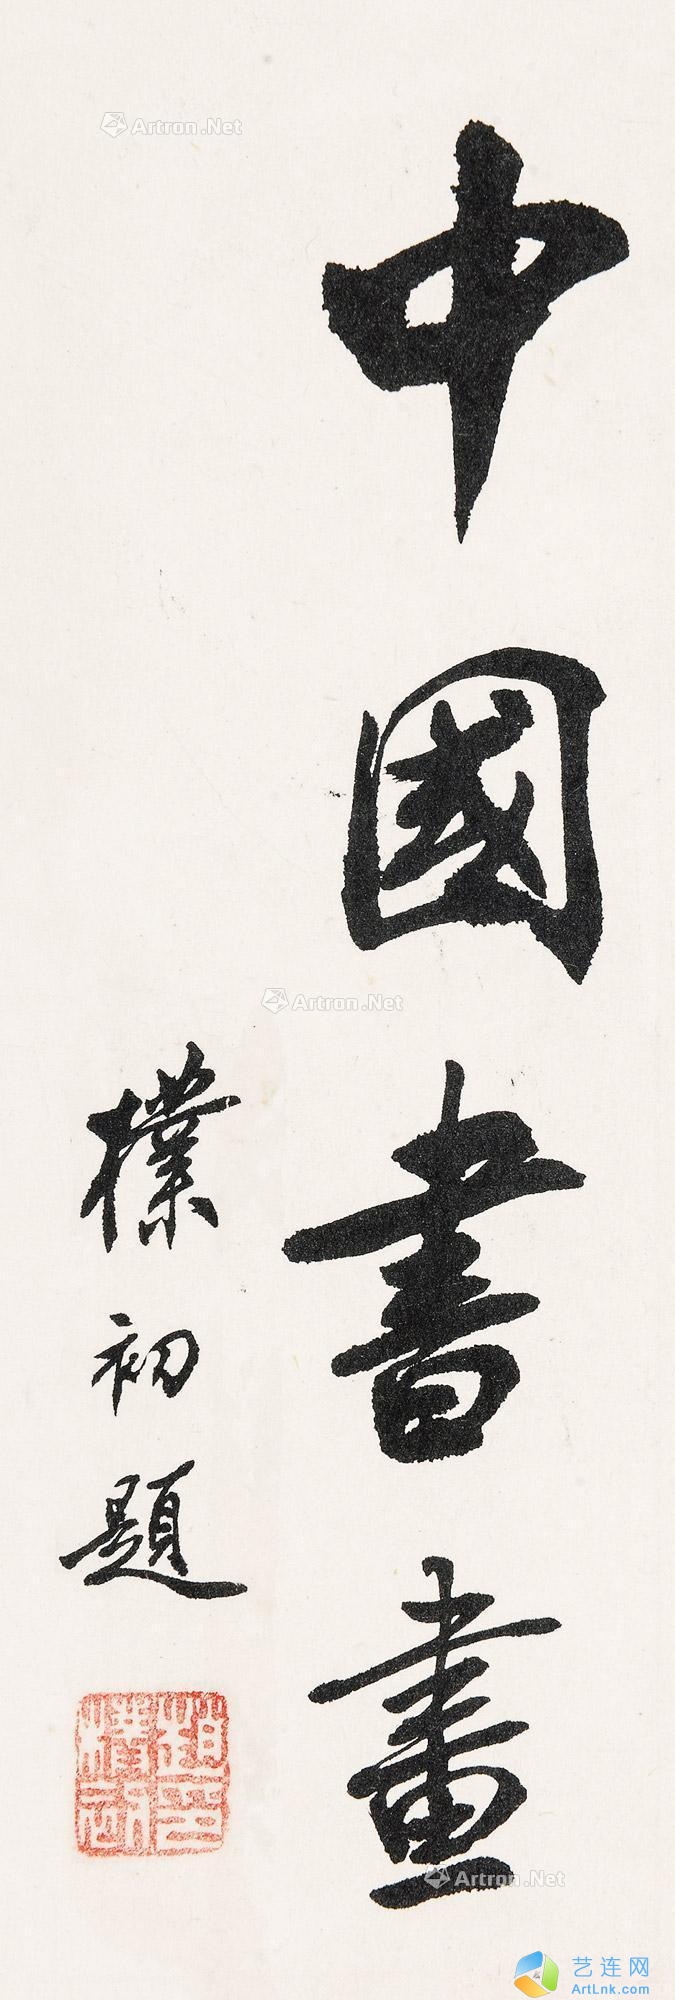 中國書畫
樸初題
趙樸初印
Artron.Net
Artron.Net
Artron.Net
艺连网
ArtLnk.com